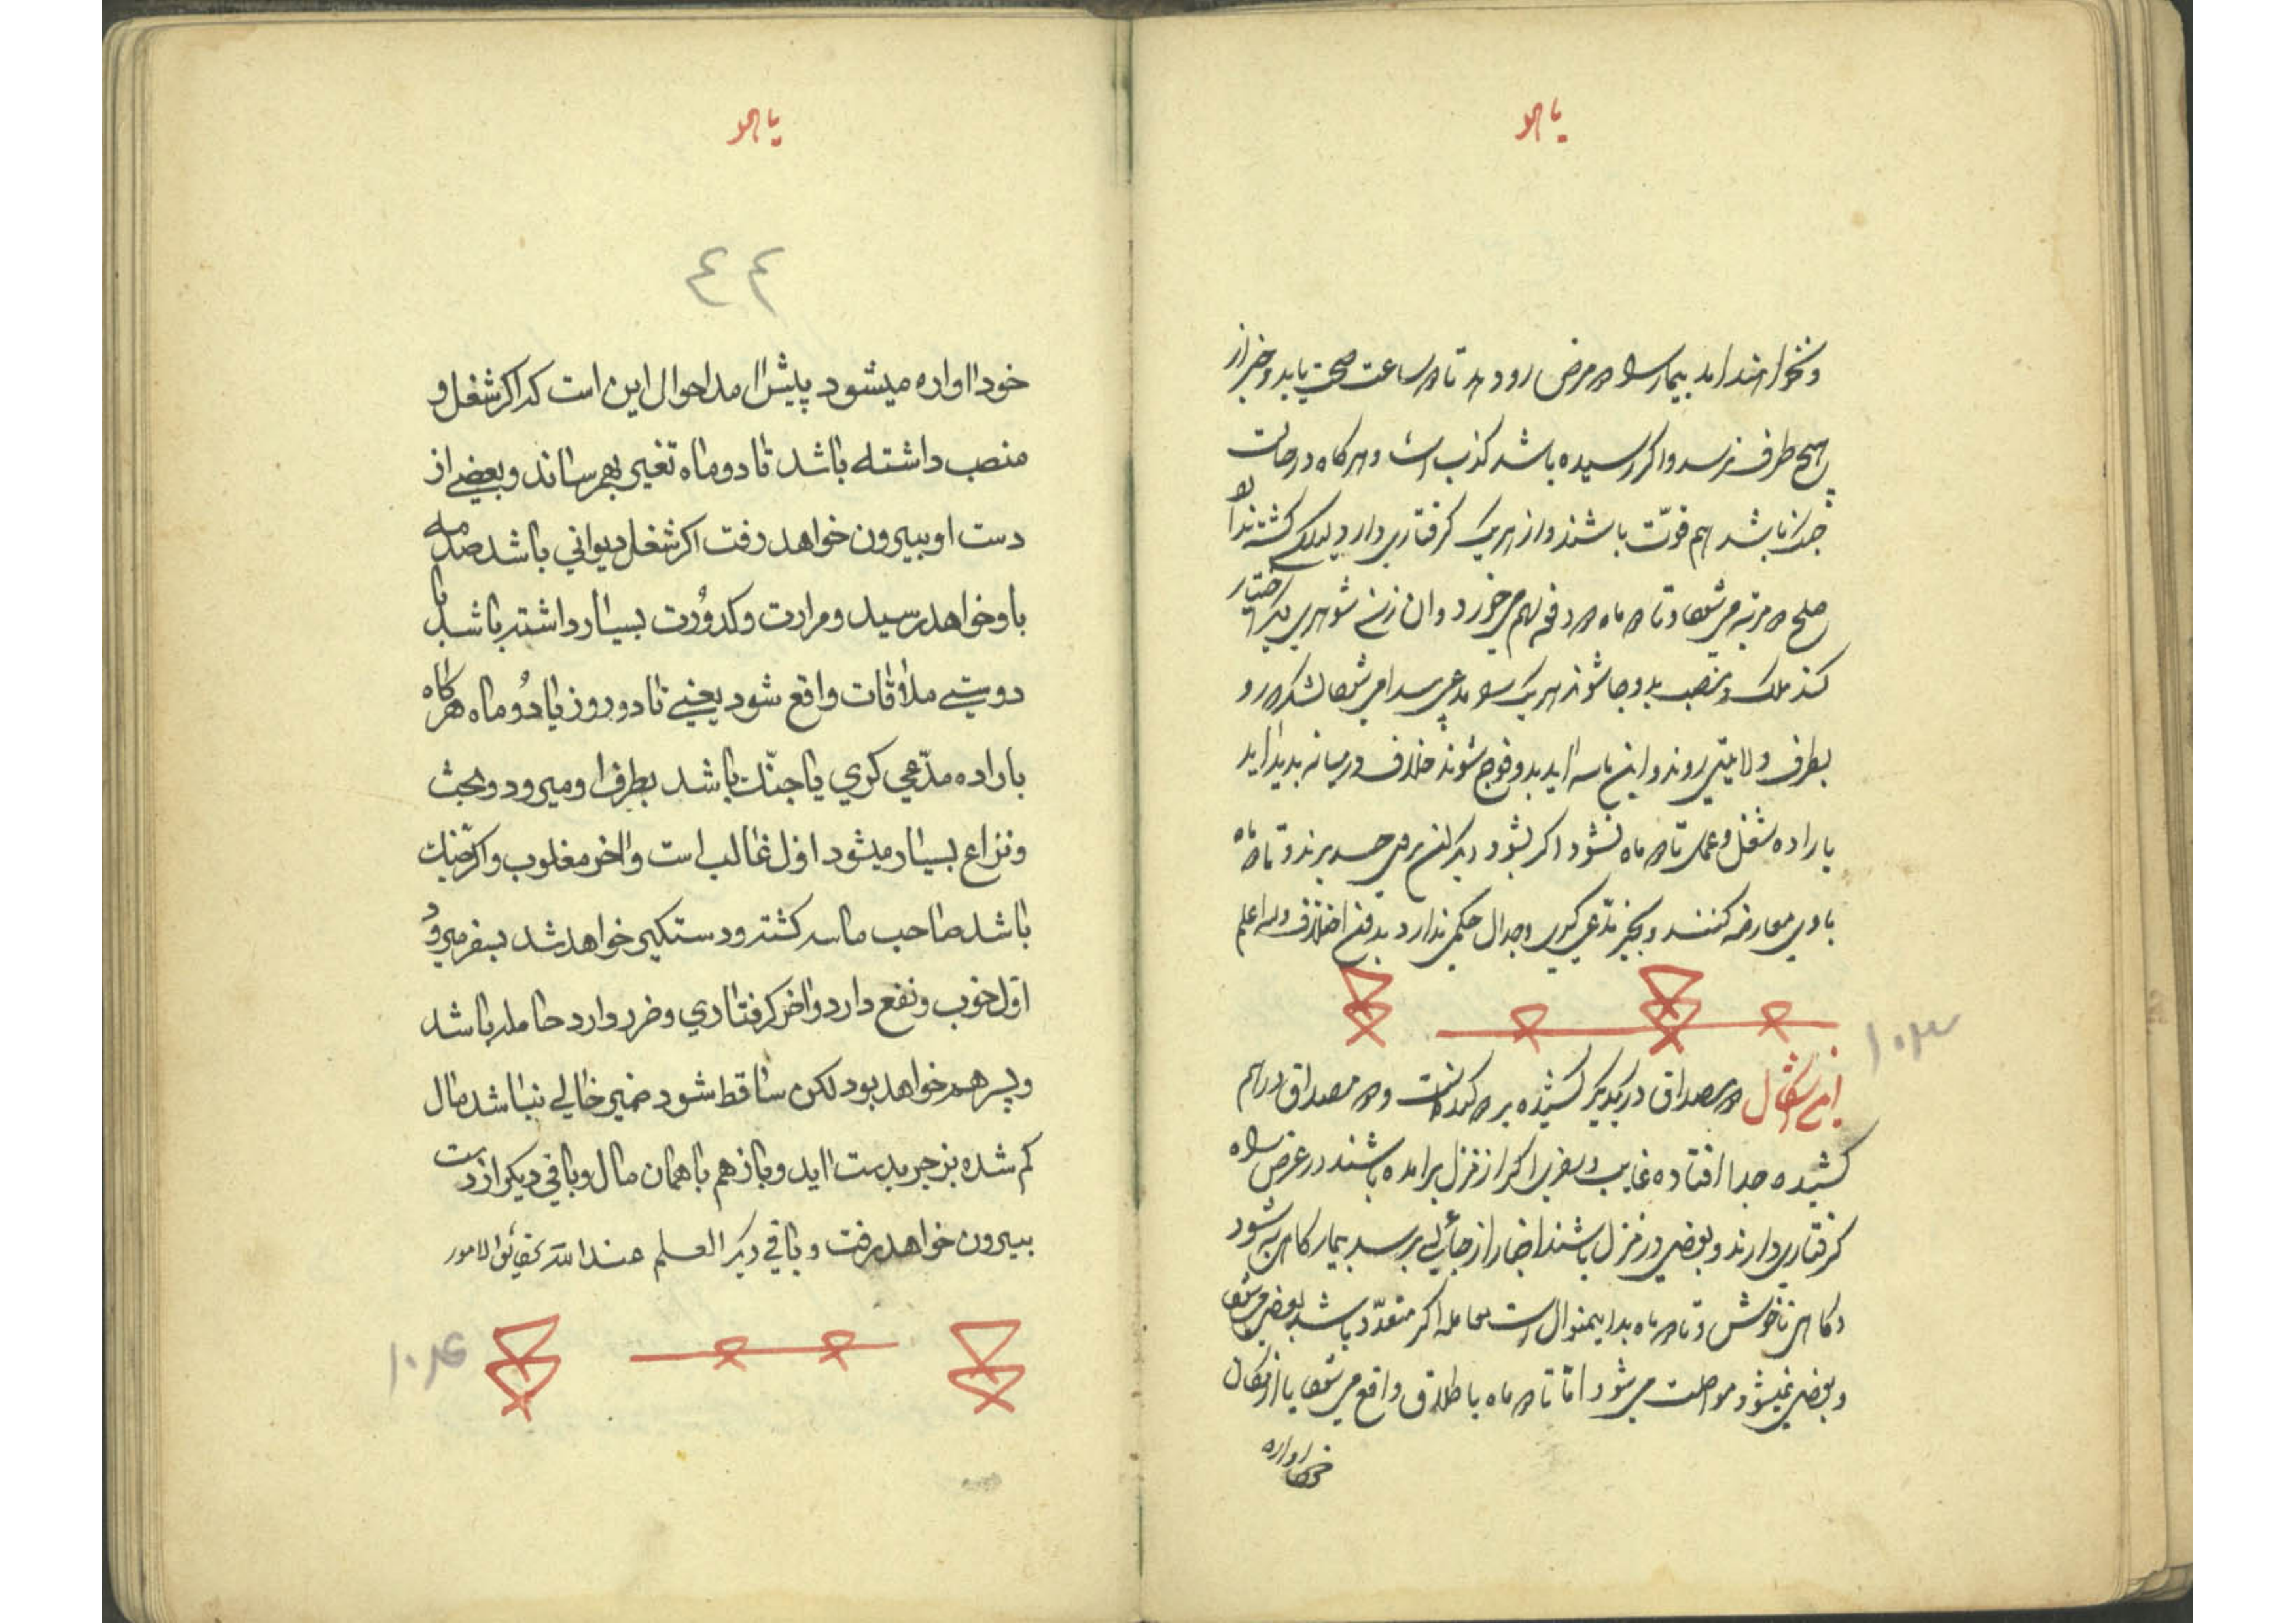 یا هو
و نخواهند امد بیمار مرض رو دهد تا ساعت صحت یابد و خبر از
هیچ طرف نرسد و اگر رسیده باشد کذب است و هرگاه در حالت
جنگ باشد هم قوت باشند و از هر یک گرفتاری دارد لیکن کشته نداند
صلح مرتبه می‌شود و تا ماه دفعه بهم می‌خورد و ان زن شوهری دیگر اختیار
کند ملک و منصب بدو جا شود از هر یک مدعی پیدا می‌شود لشکر رو
بطرف ولایتی روند و این ماسه اید بدو فوج شوند خلاف در میانه پدید اید
باراده شغل و عمل تا ماه نشود اگر بشود دیگران بر وی حسد برند و تا ماه
با وی معارضه کنند و بجز مدعی گری و جدال حکمی ندارد بدفن اختلاف والله اعلم
۱۰۳
این اشکال مصداق در یکدیگر کشیده بر و مصداق در هم
کشیده جدا افتاده غایب و سفری اگر از منزل برامده باشند در عرض راه
گرفتاری دارند و بعضی در منزل باشند اخبار از جایی برسد بیمار گاهی به شود
و گاهی ناخوش و تا ماه بدین منوال است معامله اگر متعدد باشد بعضی می‌شود
و بعضی نمیشود مواصلت می‌شود اما تا ماه یا طلاق واقع می‌شود یا از مکان
خود اواره
یا هو
٤٤
خود اواره میشود پیش امد احوال این است که اگر شغل و
منصب داشته باشد تا دو ماه تغییر بهم رساند و بعضی از
دست او بیرون خواهد رفت اگر شغل دیوانی باشد صدمه
باو خواهد رسید و مرارت و کدورت بسیار داشته باشد با
دویتی ملاقات واقع شود یعنی تا دو روز یا دو ماه هرگاه
باراده مدعی گری یا جنگ باشد بطرف او میرود و بحث
و نزاع بسیار میشود اول غالب است و اخر مغلوب و اگر جنگ
باشد صاحب ماسه کشته و دستگیر خواهد شد بسفر میرود
اول خوب و نفع دارد و اخر گرفتاری و ضرر دارد حامله باشد
و پسر هم خواهد بود لکن ساقط شود ضمیر خالی نباشد مال
کم شده بزجر بدست اید و باز هم با همان مال و باقی دیگر از دست
بیرون خواهد رفت و باقی دیگر العلم عند الله بحقائق الامور
۱۰۴